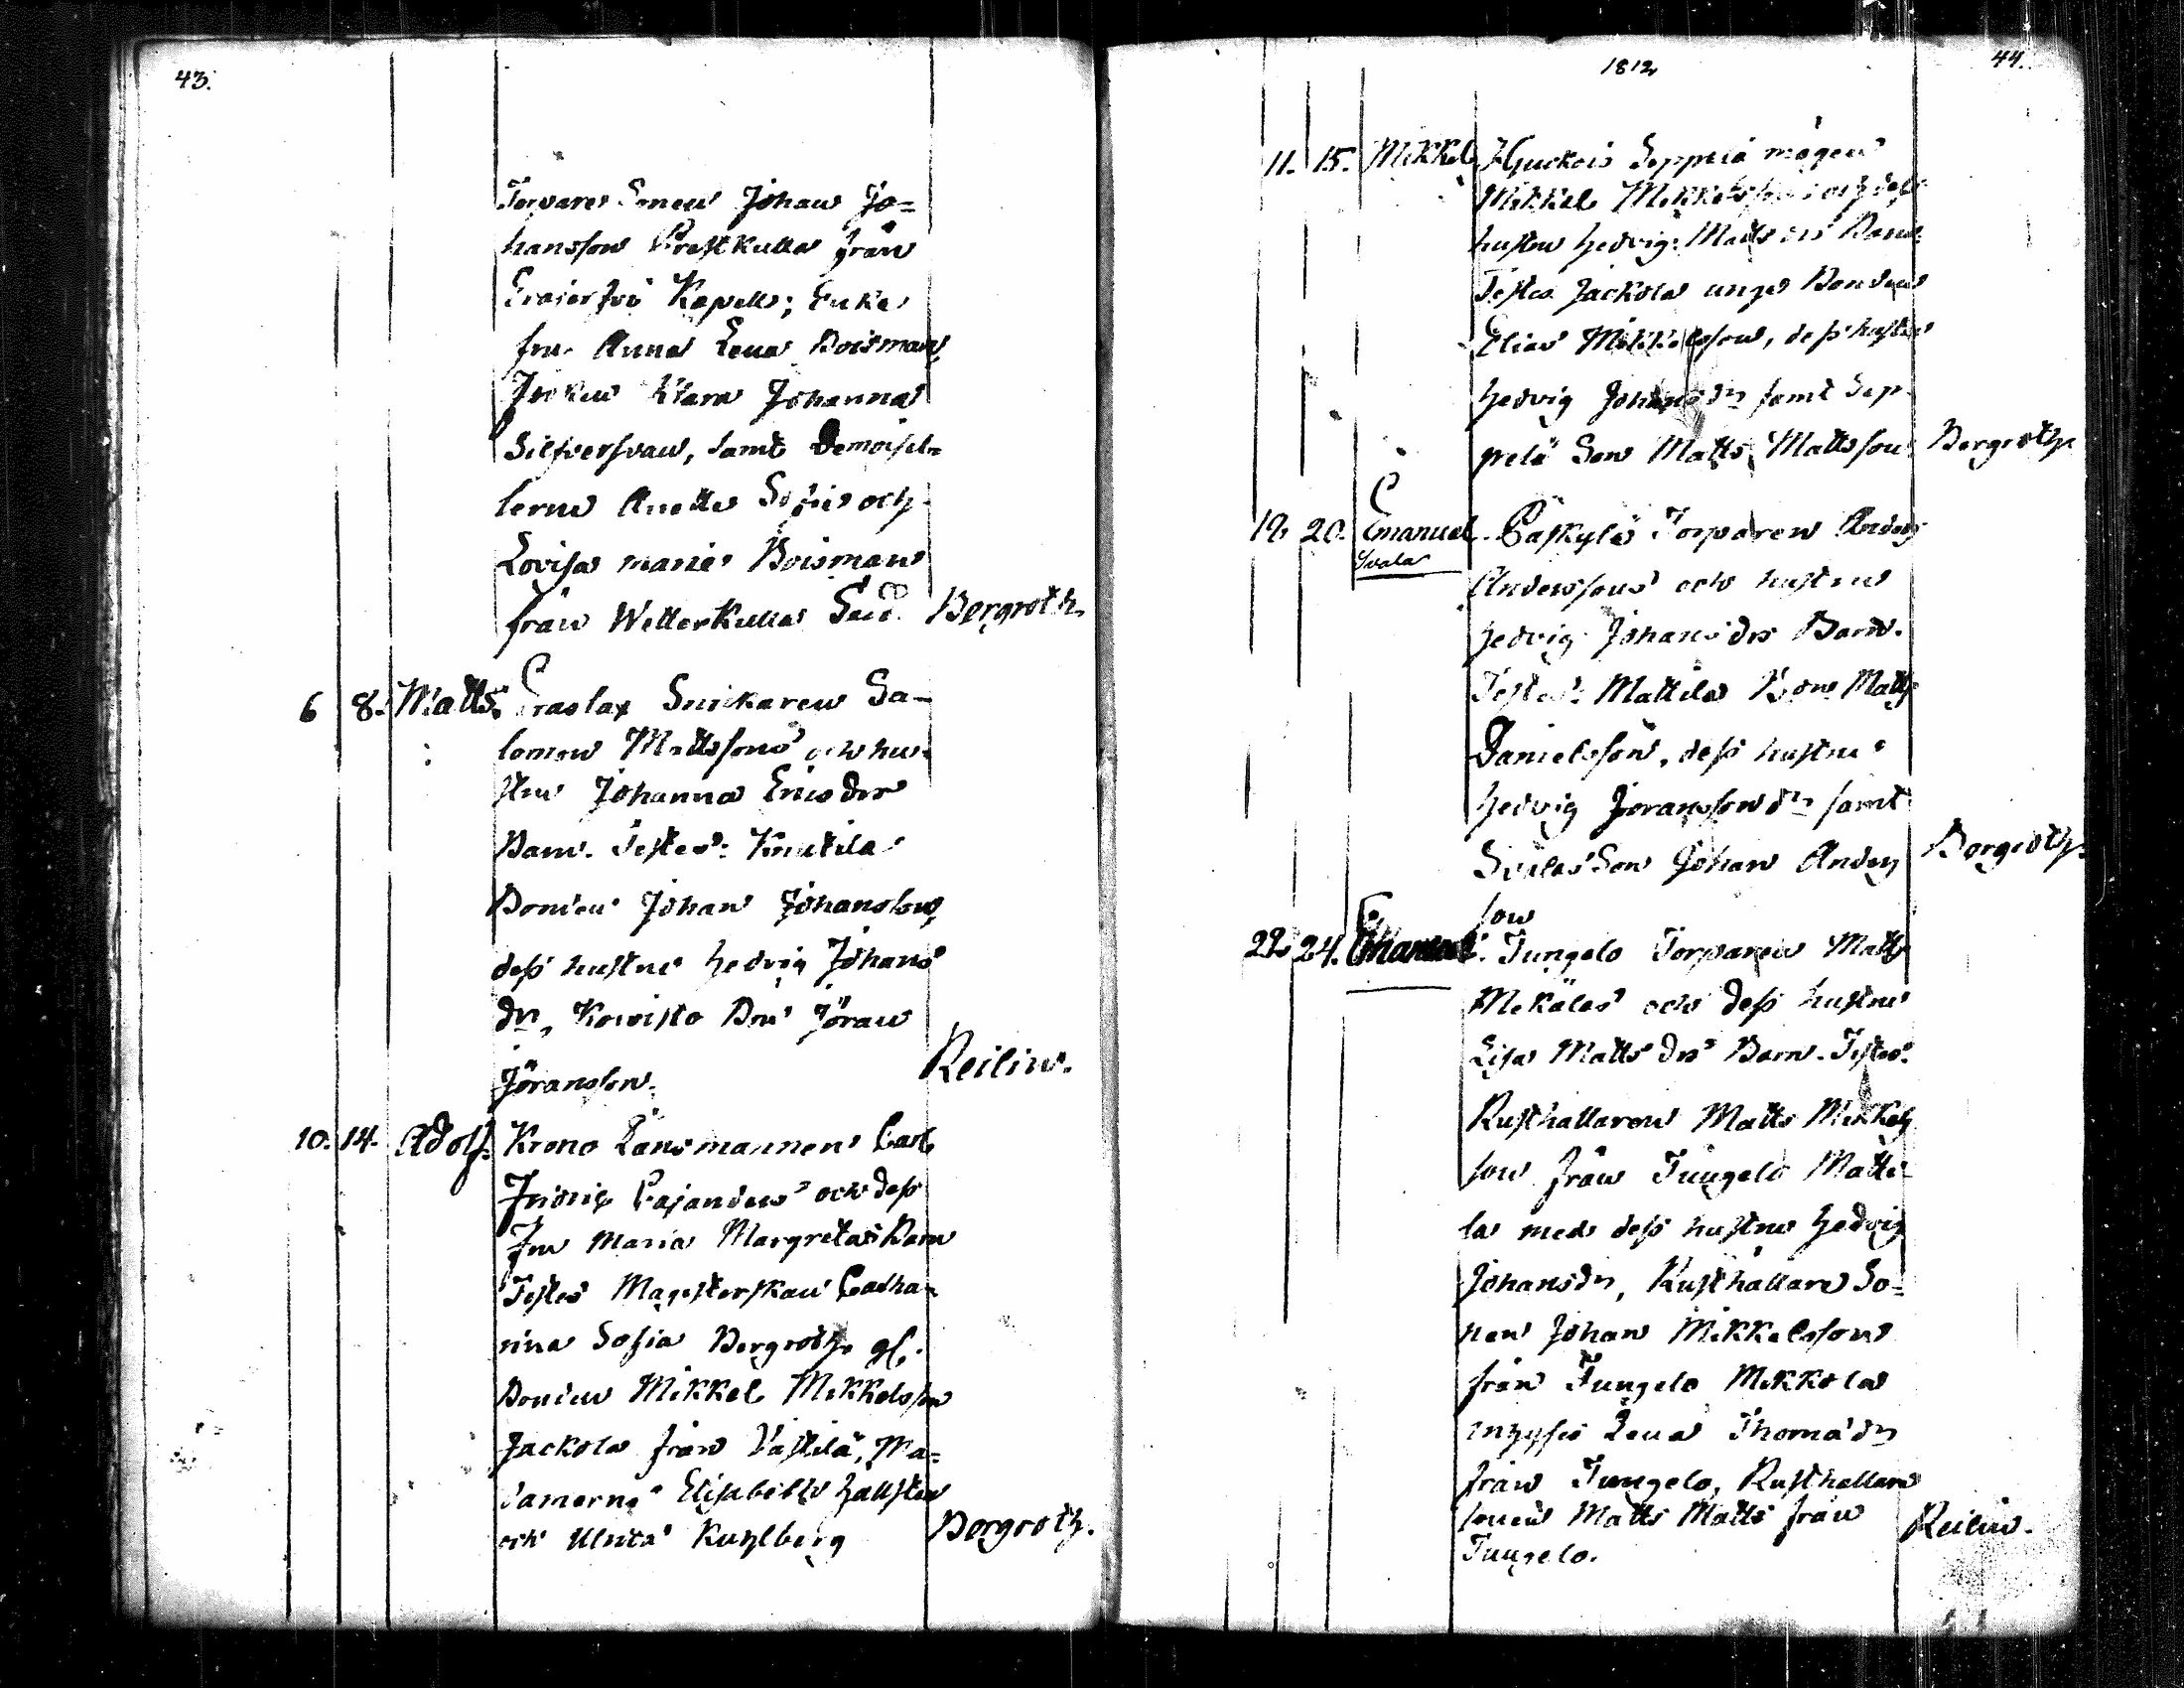 43.
Torpare Sonen Johan Jo=
hansson Prestkulla från
Kapell; Enke
fru Anna Lena Boisman,
Fröken Klara Johanna
Silfversvan, samt Demoisel=
lerne Anette Sofia och
Lovisa Maria Boisman
från Wetterkulla Bergroth.
6 8. Matts. Snickaren Sa-
lomon Mattssons och hu-
strun Johanna Ericsdrs
Barn. Testes: Knutila
Bonden Johan Johansson,
dess hustru Hedvig Johans
dr, Kowisto Bon Jöran
Jöransson. Reilin.
10. 14. Adolf. Krono Länsmannen Carl
Fridric Cajanders och dess
Fru Maria Margretas Barn
Testes Magisterskan Catha-
rina Sofia Bergroth gl.
Bonden Mikkel Mikkelsson
Jackola från Västilä, Ma=
damerna Elisabeth Hallsten
och Ulrica Kuhlberg Bergroth.
1812
44.
11. 15. Mikkel Huckois Seppelä mågen
Mikkel Mikkelssons och dess
hustru Hedvig Matts drs Barn
Testes Jackola unge Bonden
Elias Mikkelsson, dess hustru
Hedvig Johansdr samt Sep-
pelä Son Matts Mattsson Bergroth.
19. 20. Emanuel Torparen Anders
Svala
Anderssons och hustrun
Hedvig Johansdrs Barn.
Testes: Mattila Bon Matts
Danielsson, dess hustru
Hedvig Joranssondr samt
Svalas Son Johan Anders
son Bergroth.
22. 24. Emanuel. Jungelo Torparen Matts
Mikäles och dess hustru
Lisa Matts drs Barn. Testes:
Rusthållaren Matts Mikkels
son från Jungelo Matti-
la med dess hustru Hedvig
Johansdr, Rusthållare So=
nen Johan Mikkelsson
från Jungelo Mikkola
inhyses Lena Thomadr
från Jungelo, Rusthållare
sonen Matts Matts från Reilin.
Jungelo.